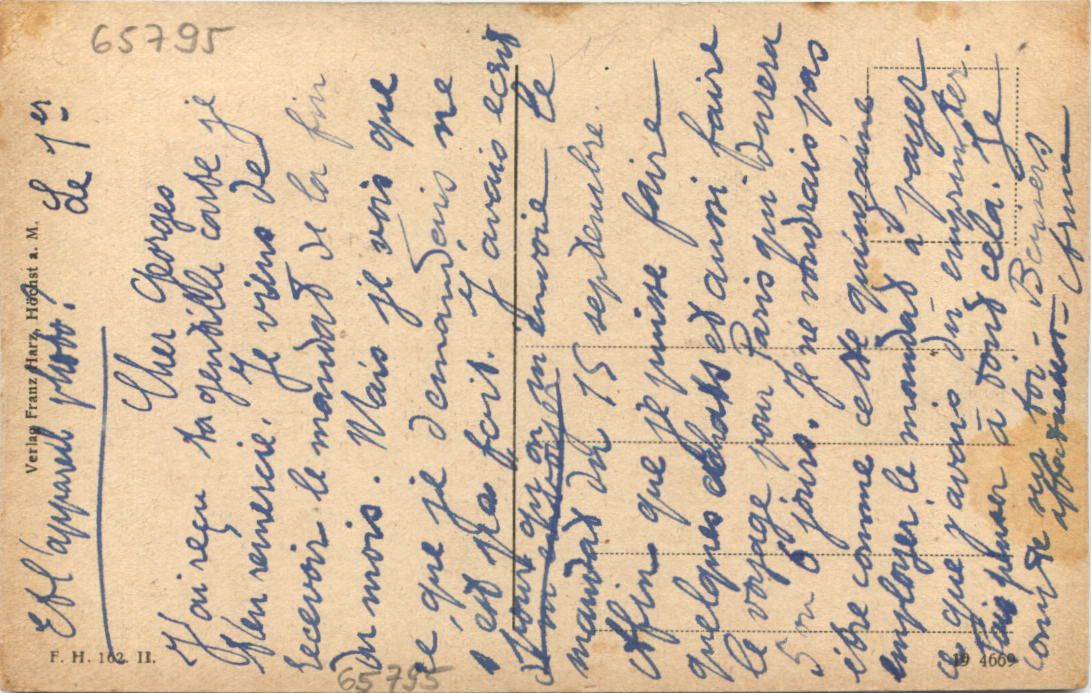 65795
Le 1er
Et l'appareil photo?
Cher Georges
J'ai reçu ta gentille carte je
t'en remercie. Je viens de
recevoir le mandat de la fin
du mois. Mais je vois que
ce que je demandais ne
s'est pas fait. J'avais écrit
pour qu'on envoie le
mandat du 15 septembre.
Afin que je puisse faire
quelques achats et aussi faire
le voyage pour Paris qui durera
5 ou 6 jours. Je ne voudrais pas
être comme cette quinzaine
employer le mandat à payer
ce que j'avais dû emprunter.
Fais penser à tout cela. Je
compte sur toi - Baisers
affectueux -
Verlag Franz Harz, Höchst a. M.
F. H. 162. II.
19 4669
65795